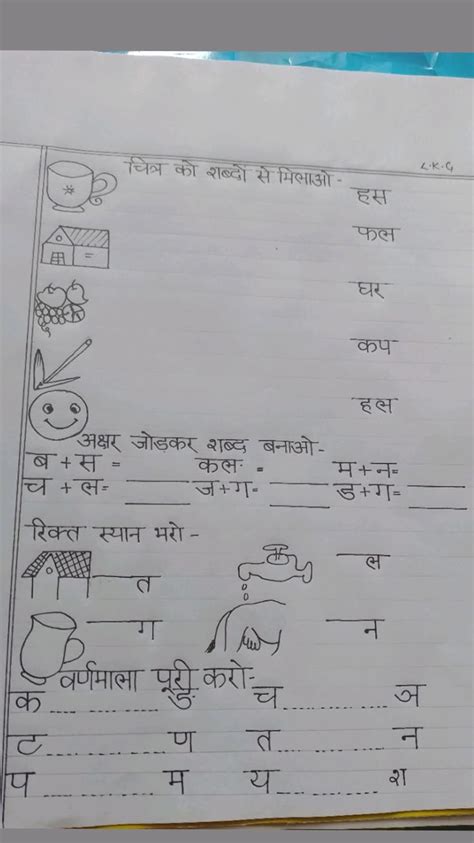 L.K.G
चित्र को शब्दों से मिलाओ -
हस
फल
घर
कप
हल
अक्षर जोडकर शब्द बनाओ-
ब + स = कल = म + न =
च + ल = ज + ग = ड + ग =
रिक्त स्थान भरो -
त ल
ग न
वर्णमाला पूरी करो:-
क ङ च ञ
ट ण त न
प म य श